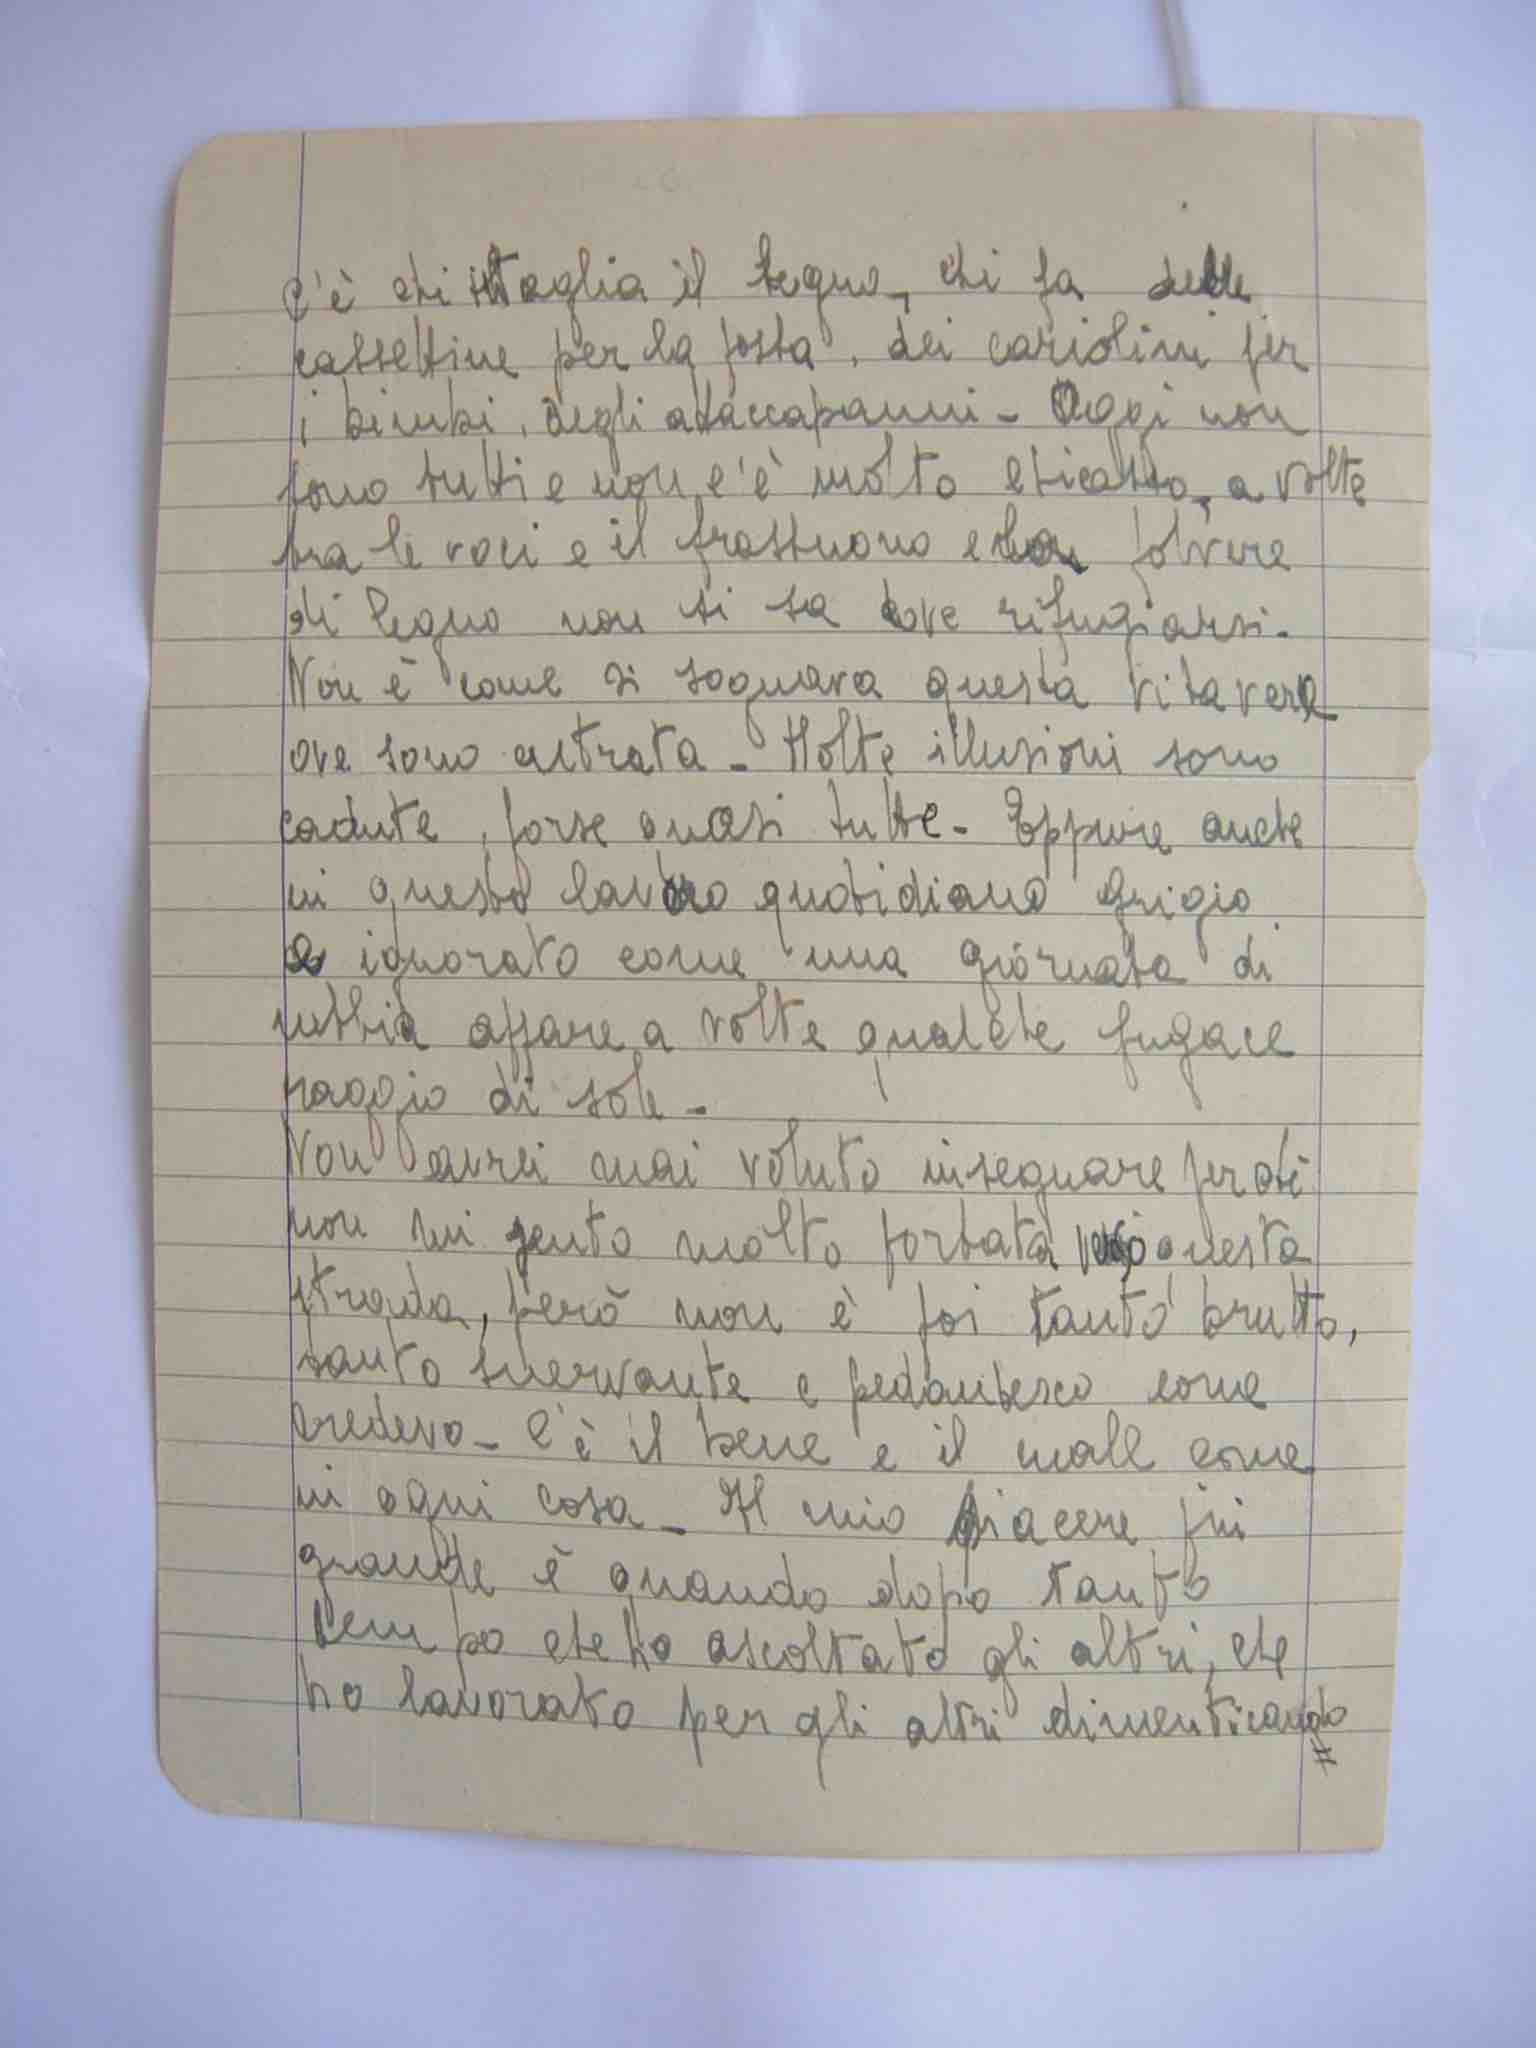 c'è chi intaglia il legno, chi fa delle
cassettine per la posta, dei cariolini per
i bimbi, degli attaccapanni - Oggi non
sono tutti e non c'è molto chicasso, a volte
tra le voci e il frastuono e la polvere
di legno non si sa dove rifugiarsi -
Non è come si sognava questa vita vera
ove sono entrata - Molte illusioni sono
cadute, forse quasi tutte - Eppure anche
in questo lavoro quotidiano grigio
e ignorato come una giornata di
nebbia appare a volte qualche fugace
raggio di sole -
Non avrei mai voluto insegnare perchè
non mi sento molto portata verso questa
strada, però non è poi tanto brutto,
tanto snervante e pedantesco come
credevo - C'è il bene e il male come
in ogni cosa - Il mio piacere più
grande è quando dopo tanto
tempo che ho ascoltato gli altri, che
ho lavorato per gli altri dimenticando
#